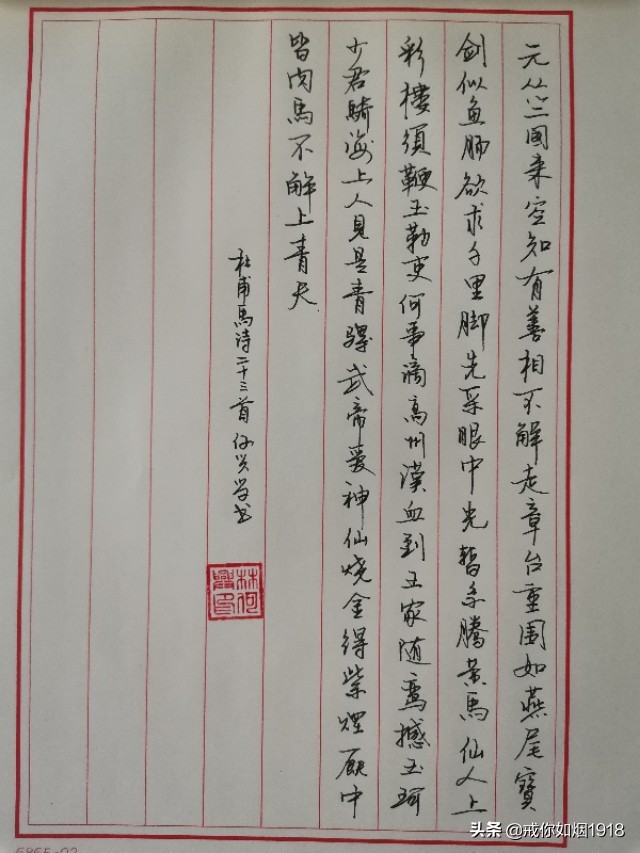 元从竺國来空知有善相不解走章台重围如燕尾寶
剑似鱼肠欲求千里脚先采眼中光暂系騰黄馬仙人上
彩樓須鞭玉勒吏何事谪高州漢血到王家随鸾撼玉珂
少君騎海上人見是青骡武帝爱神仙烧金得紫煙厩中
皆肉馬不解上青天
杜甫馬诗二十三首
头条 @戒你如烟1918
6865-02